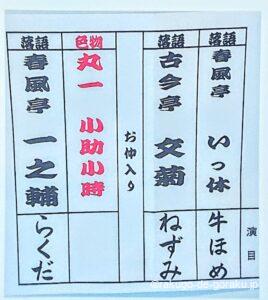 演目
落語
春風亭 いっ休
牛ほめ
落語
古今亭 文菊
ねずみ
お仲入り
色物
丸一 小助小時
落語
春風亭 一之輔
らくだ
©rakugo-de-goraku.jp